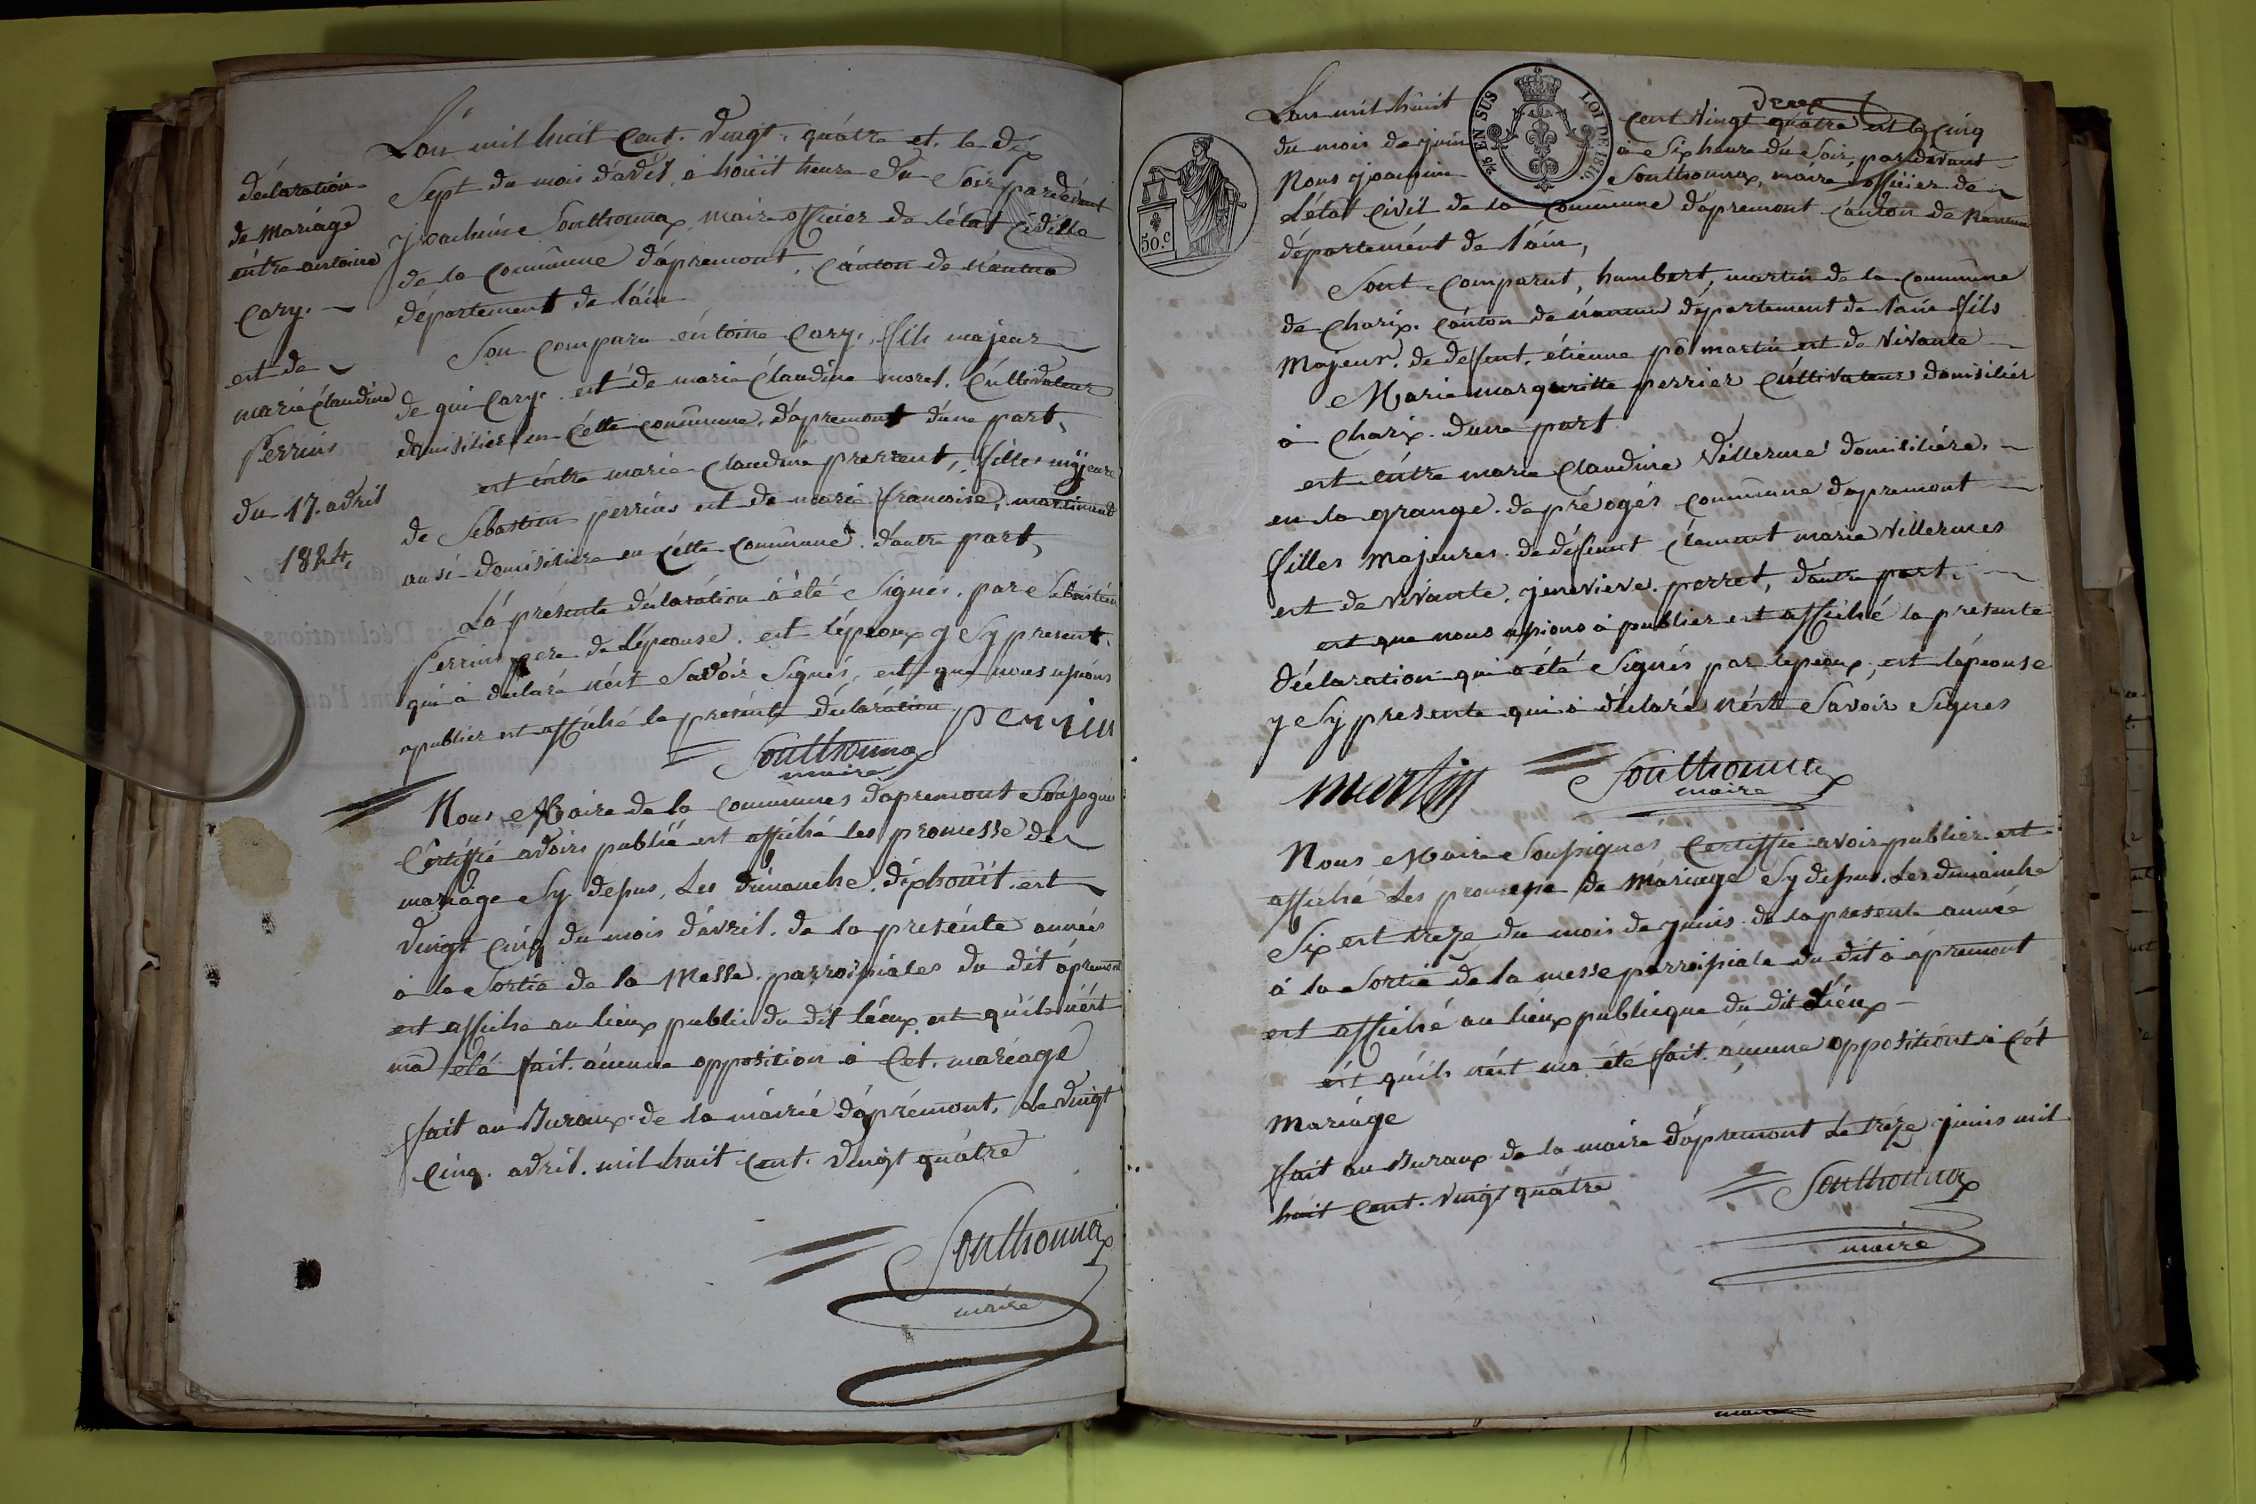 déclaration
de Mariage
éntre antoine
Cary.
est de
marie Claudine
Perrins
du 17. avril
1824,
L'an mil huit Cent. Vingt. quátre et. le dix
Sept du mois d'avril, à houit heure du Soir pardevant
joachime Southonnax, maire officier de l'état Cidille
de la Commûune d'apremont, Cánton de Nantua
département de l'ain
Son Compara éntoine Cary, fils majeur
de qui Cary. est de marie Claudine morel. Cultivateur
domisilier en Cétte Commune, d'apremont d'une part,
est éntre marie Claudine perrent, filles majeure
de Sébastien perrins est de marie francoise, martinand
ausi domisiliére en Cétte Commune. d'autre part,
La présente déclaration a été Signés, par Sébastien
Perrins pere de l'épeouse. est l'épeoux y Sy present,
qui à déclaré nért Savoir Signés, est que nous ussions
apublier est affiché la présente déclaration
perrin
Southonnax
maire
Nous Maire de la Communes d'apremont Soussigné
Certiffié avoirs publié est affiché les promesse de
mariage Sy depus, Les dimanche. dixhouit. est
Vingt Cinq du mois d'ávril. de la preténte année
à la Sortie de la Messe. parroissiales du dit ápremont
est affiche au lieux public du dit léeux est qu'ils nért
ma été fait. áucune opposition à Cet. mariage
fait au Buraux de la mairie d'aprémont, Le Vingt
Cinq. avril. mil huit Cent. Vingt quátre
Southonnax
maire
L'an mil huit Cent Vingt quatre est le Cinq
du mois de juin à Six heure du Soir, pardevant
Nous joachime Southonnax, maire officier de
L'état Civil de la Commune d'apremont Cánton de Nantua
département de l'ain,
Sont Comparut, humbert, martin de la Commûne
de Charix. Cánton de nantua département de l'ain fils
Majeur. de defunt. étienne po martin est de Vivante
Marie margueritte perrier Cultivateur domisilier
à Charix. d'une part
est éntre marie Claudine Villermé domisiliére.
en la grange. de pré ogés Commûne d'apremont
filles Majeures. de défunt Clement marie Villermes
est de Vivante. jenevieve. perret, d'autre part.
est que nous ussions à publier est affiché la présente
déclaration qui a été Signés par l'epeoux, est l'épeouse
y Sy presente qui à déclaré nért Savoir Signes
martin
Southonnax
maire
Nous Maire Soussignés Certiffie avoir publier est
affiché Les promesse de Mariage Sy depus. Les dimainche
Six est treze du mois de juins. de la presente année
à la Sortie de la messe parroissiale du dit à ápremont
est affiché au lieux publicque du dit Liéux
ést qu'ils nént ma été fait. áucune oppositiont à Cét
Mariáge
fait au Buraux de la maire d'apremont Le tréze juins mil
huit Cent. Vingt quátre
Southonnax
maire
2/8 EN SUS
LOI DE 1816.
50.C